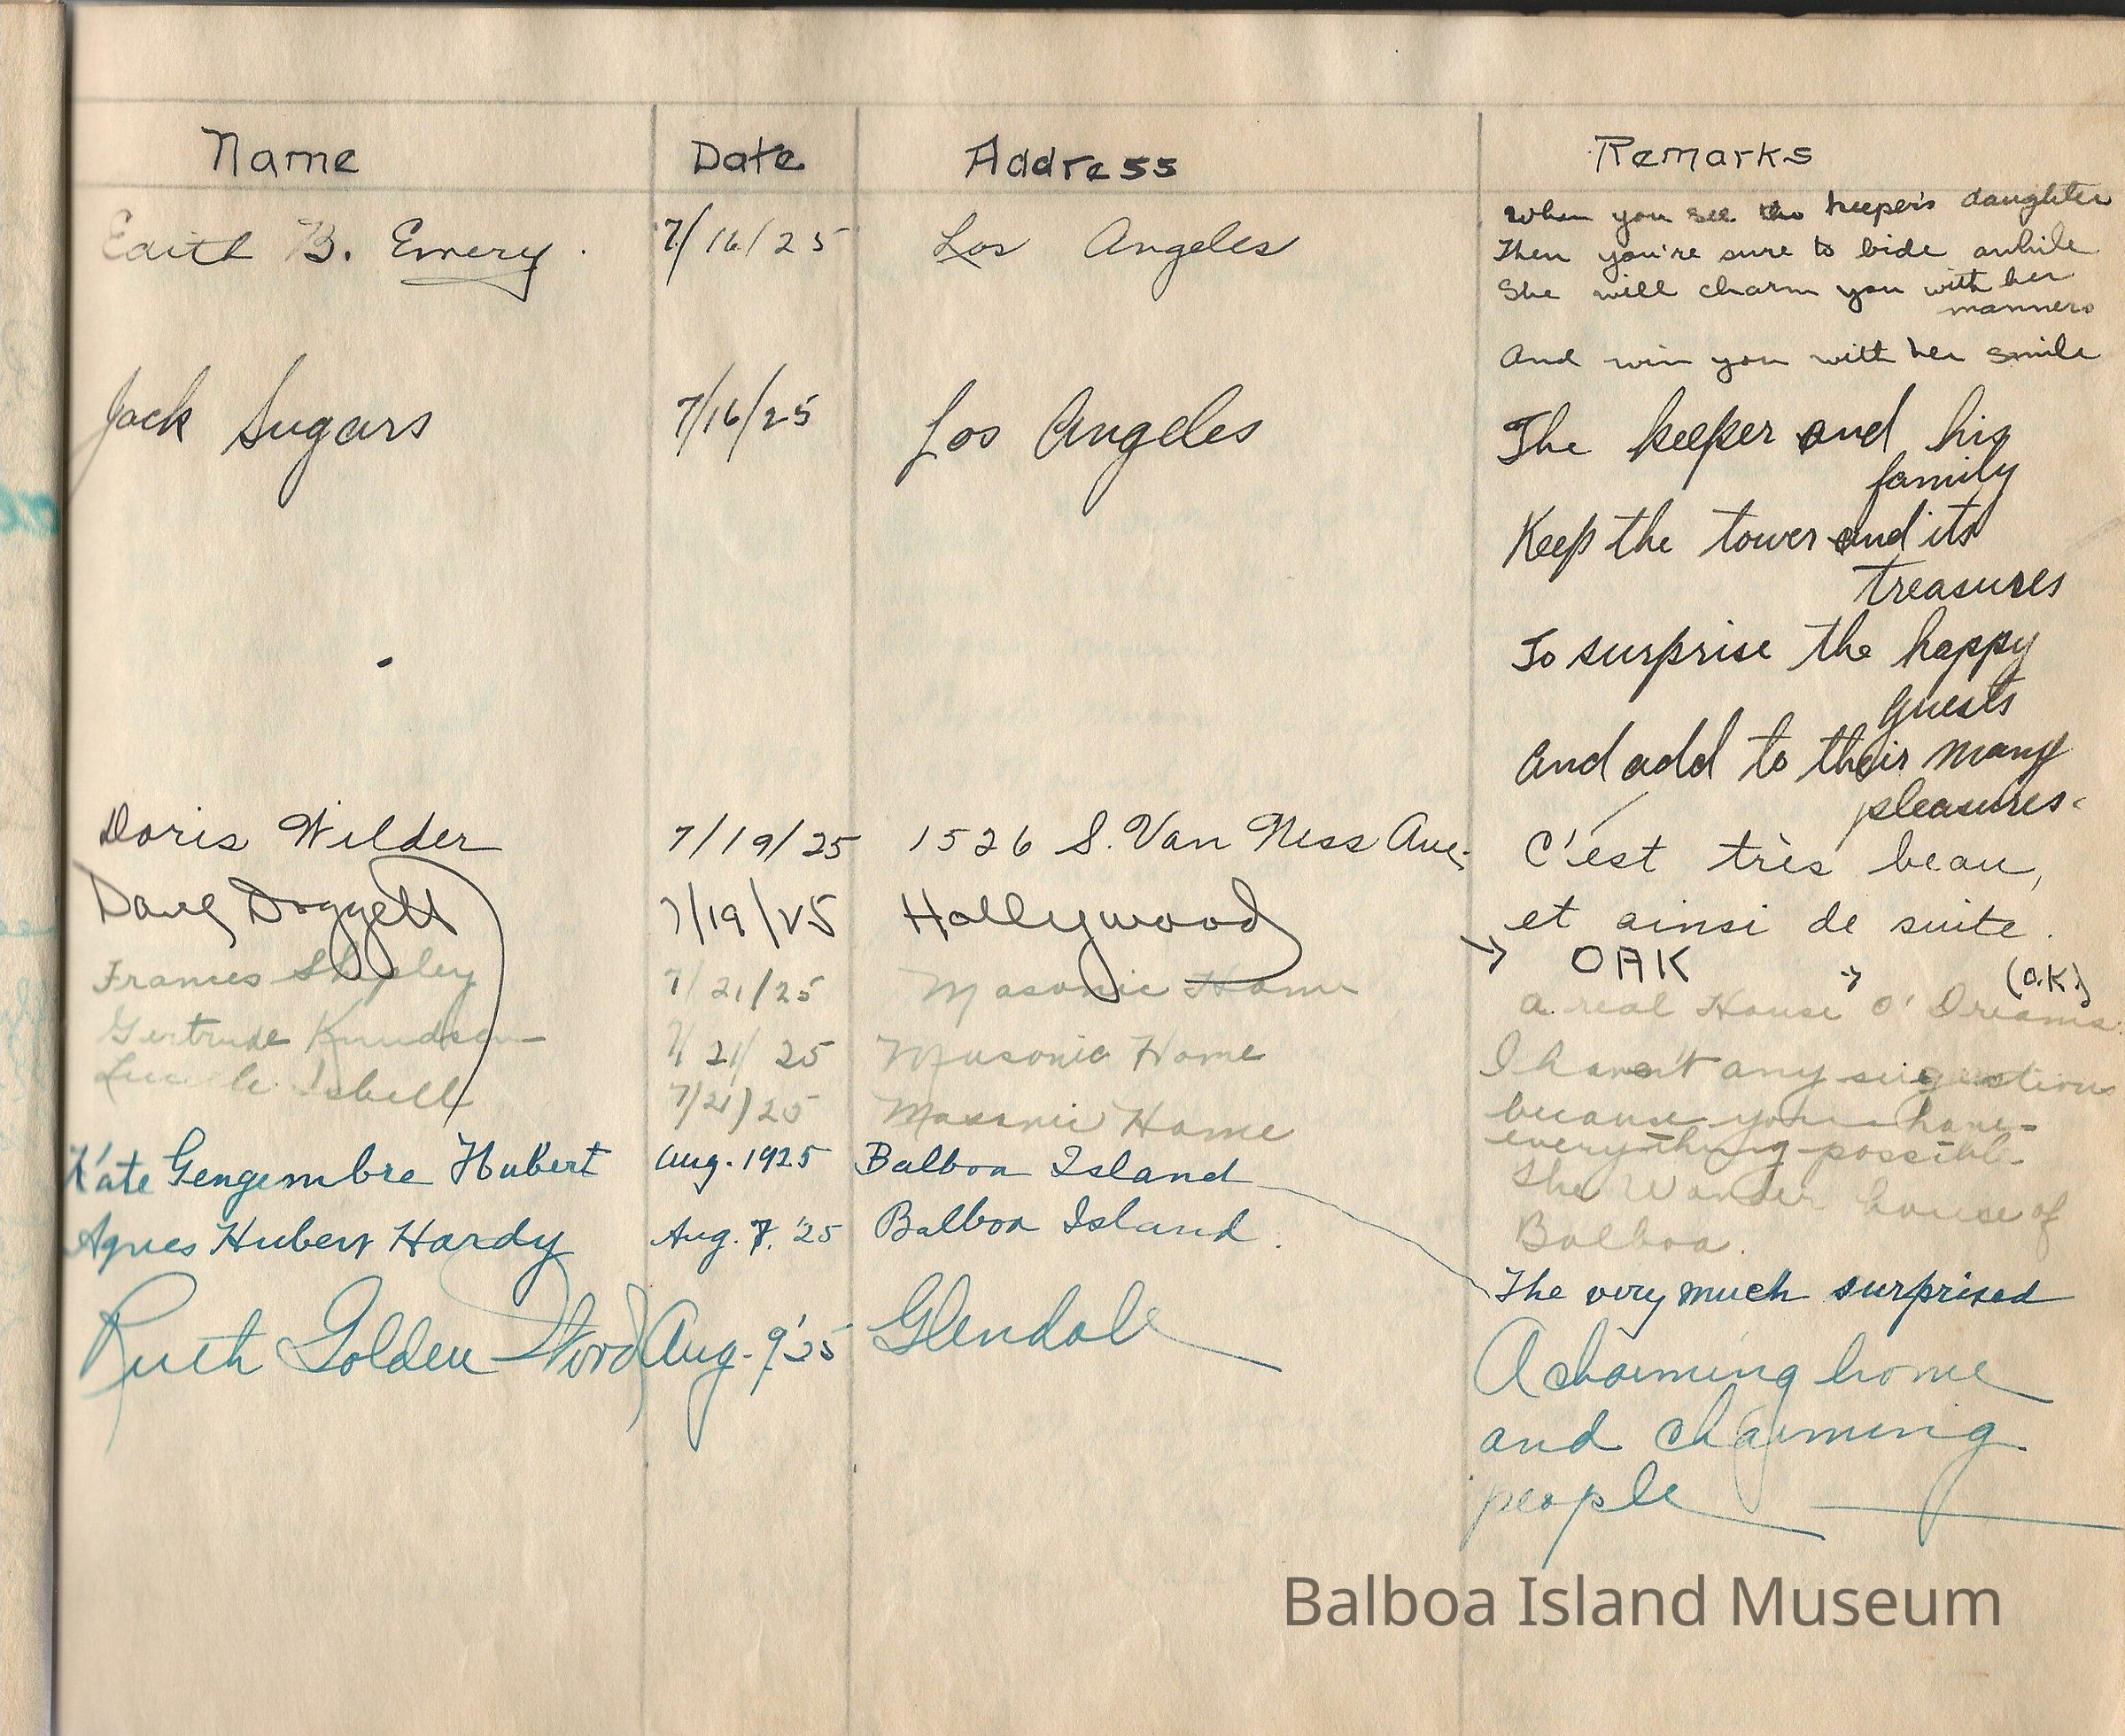 Name Date Address Remarks
Edith B. Emery. 7/16/25 Los Angeles
When you see the keeper's daughter
Then you're sure to bide awhile
She will charm you with her
manners
And win you with her smile
Jack Sugars 7/16/25 Los Angeles
The keeper and his
family
Keep the tower and its
treasures
To surprise the happy
guests
And add to their many
pleasures.
Doris Wilder 7/19/25 1526 S. Van Ness Ave. C'est très beau,
et ainsi de suite.
Doggett 7/19/25 Hollywood → OAK → (O.K.)
Frances 7/21/25 Masonic Home a real House O' Dreams.
Gertrude Knudsen 7/21/25 Masonic Home I haven't any suggestions
because you have
everything possible
Isbell 7/21/25 Masonic Home The Wonder house of
Balboa.
Kate Gengembre Hubert Aug. 1925 Balboa Island The very much surprised
Agnes Hubert Hardy Aug. 7. '25 Balboa Island.
Ruth Golden Aug. 9 '25 Glendale A charming home
and charming
people
Balboa Island Museum